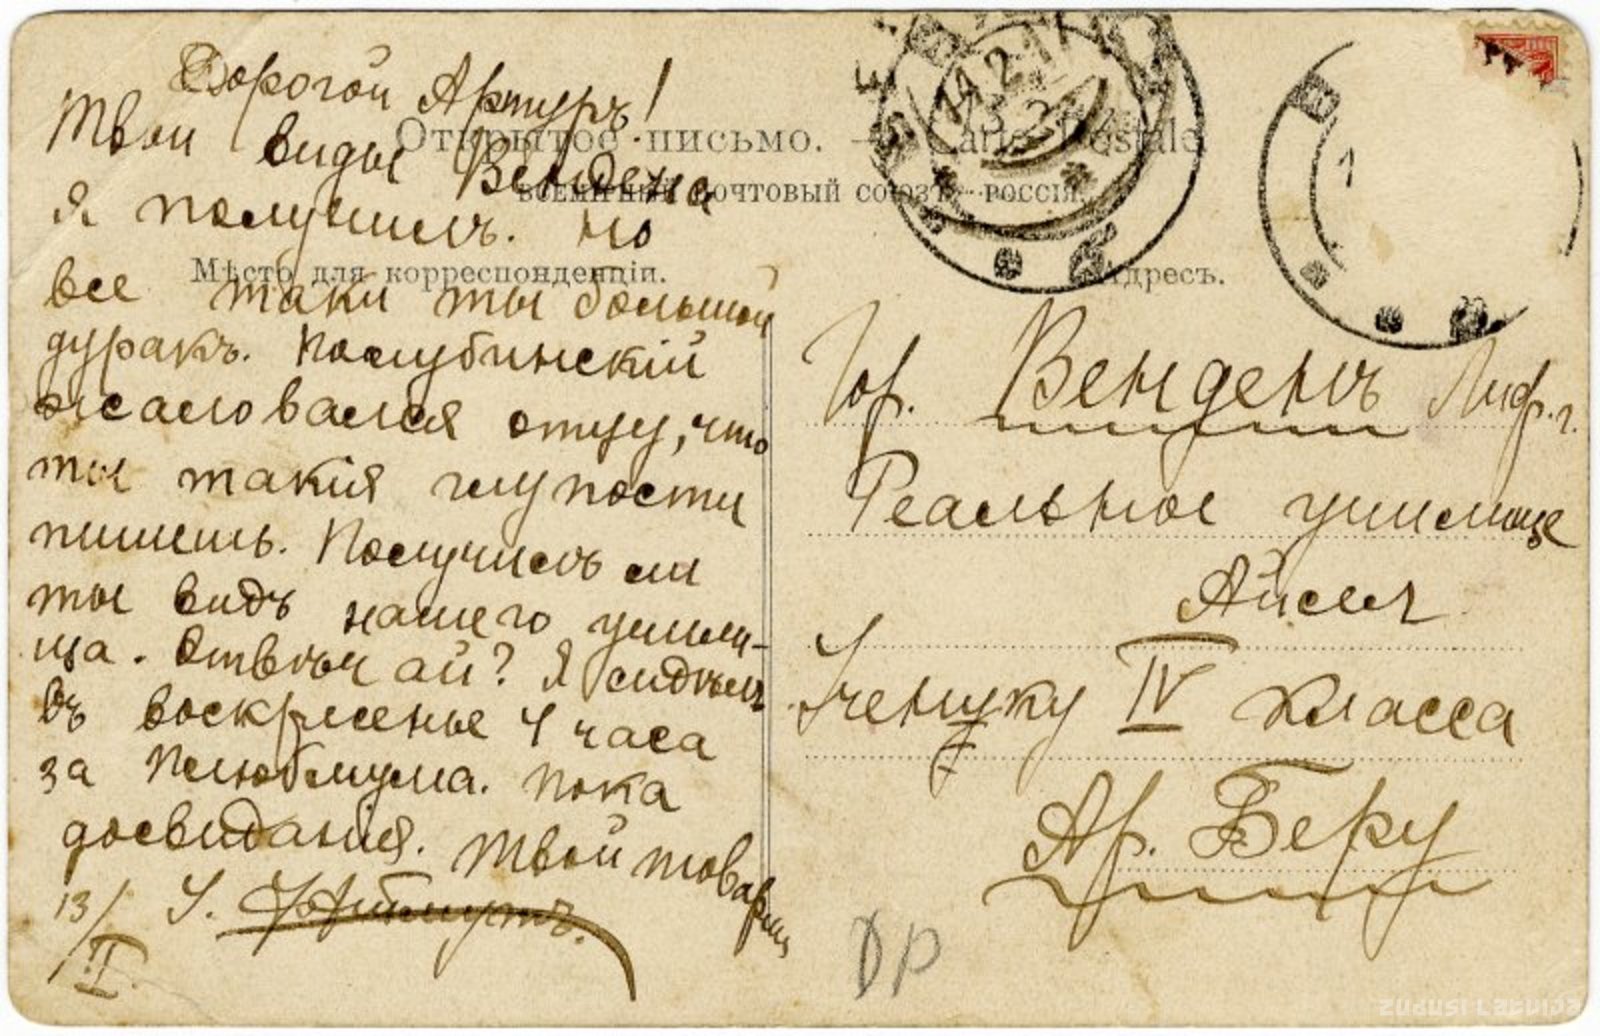 Дорогой Артуръ!
Твои виды Вендена
я получилъ. Но
все таки ты большой
дуракъ. Полубинскій
жаловался отцу, что
ты такія глупости
пишешь. Получилъ ли
ты видъ нашего учили-
ща. Отвѣчай? Я сидѣлъ
въ воскресенье 4 часа
за
пока
досвиданія. Твой товарищ
13/I
Открытое письмо. — Carte Postale.
ВСЕМІРНЫЙ ПОЧТОВЫЙ СОЮЗЪ. РОССІЯ.
Мѣсто для корреспонденціи.
Адресъ.
Гор. Венденъ Лифл. г.
Реальное училище
Ученику IV класса
Ар. Беру
DP
zudusi Latvija